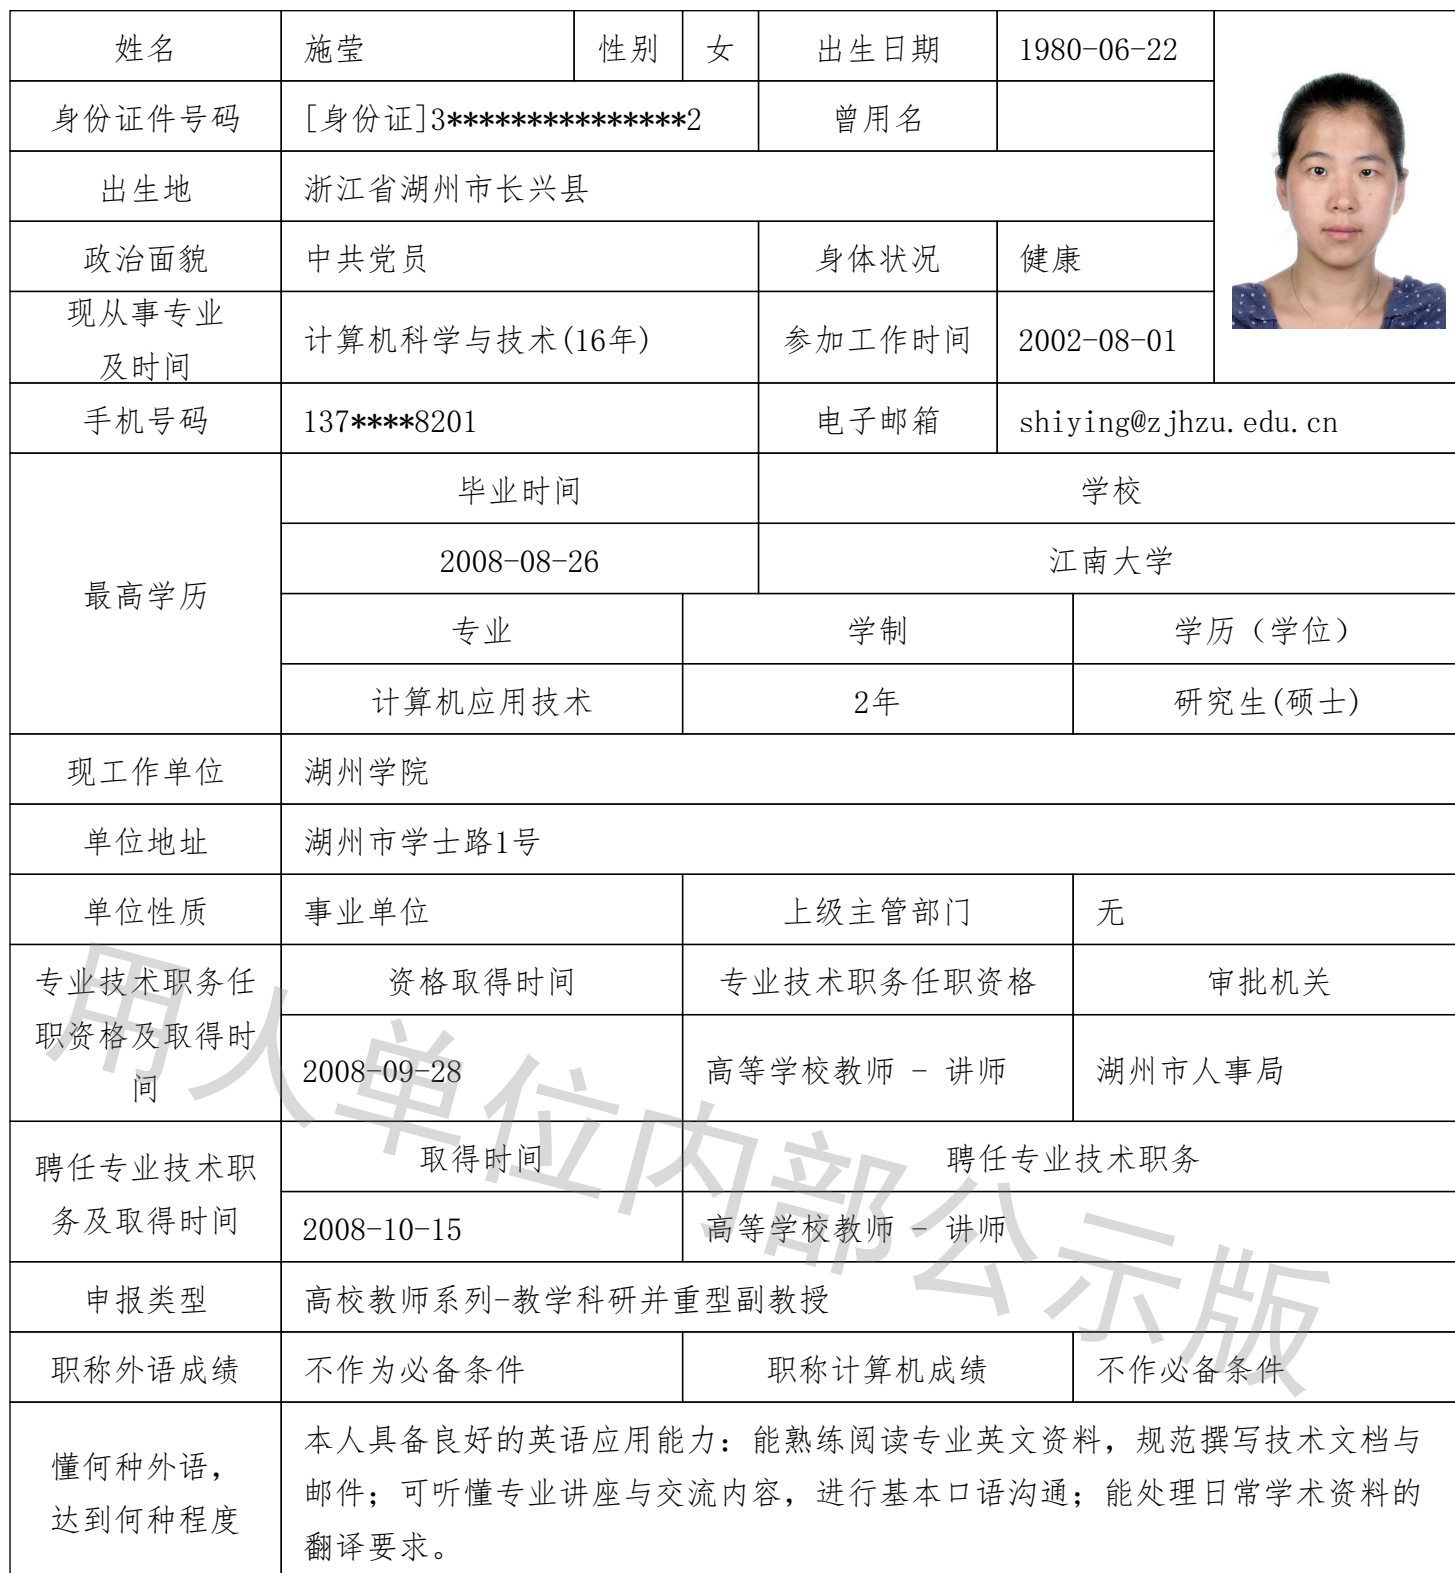 姓名 施莹 性别 女 出生日期 1980-06-22
身份证件号码 [身份证]3***************2 曾用名
出生地 浙江省湖州市长兴县
政治面貌 中共党员 身体状况 健康
现从事专业
及时间 计算机科学与技术(16年) 参加工作时间 2002-08-01
手机号码 137****8201 电子邮箱 shiying@zjhzu.edu.cn
最高学历
毕业时间 学校
2008-08-26 江南大学
专业 学制 学历（学位）
计算机应用技术 2年 研究生(硕士)
现工作单位 湖州学院
单位地址 湖州市学士路1号
单位性质 事业单位 上级主管部门 无
专业技术职务任
职资格及取得时
间
资格取得时间 专业技术职务任职资格 审批机关
2008-09-28 高等学校教师 - 讲师 湖州市人事局
聘任专业技术职
务及取得时间
取得时间 聘任专业技术职务
2008-10-15 高等学校教师 - 讲师
申报类型 高校教师系列-教学科研并重型副教授
职称外语成绩 不作为必备条件 职称计算机成绩 不作必备条件
懂何种外语，
达到何种程度
本人具备良好的英语应用能力：能熟练阅读专业英文资料，规范撰写技术文档与
邮件；可听懂专业讲座与交流内容，进行基本口语沟通；能处理日常学术资料的
翻译要求。
用人单位内部公示版